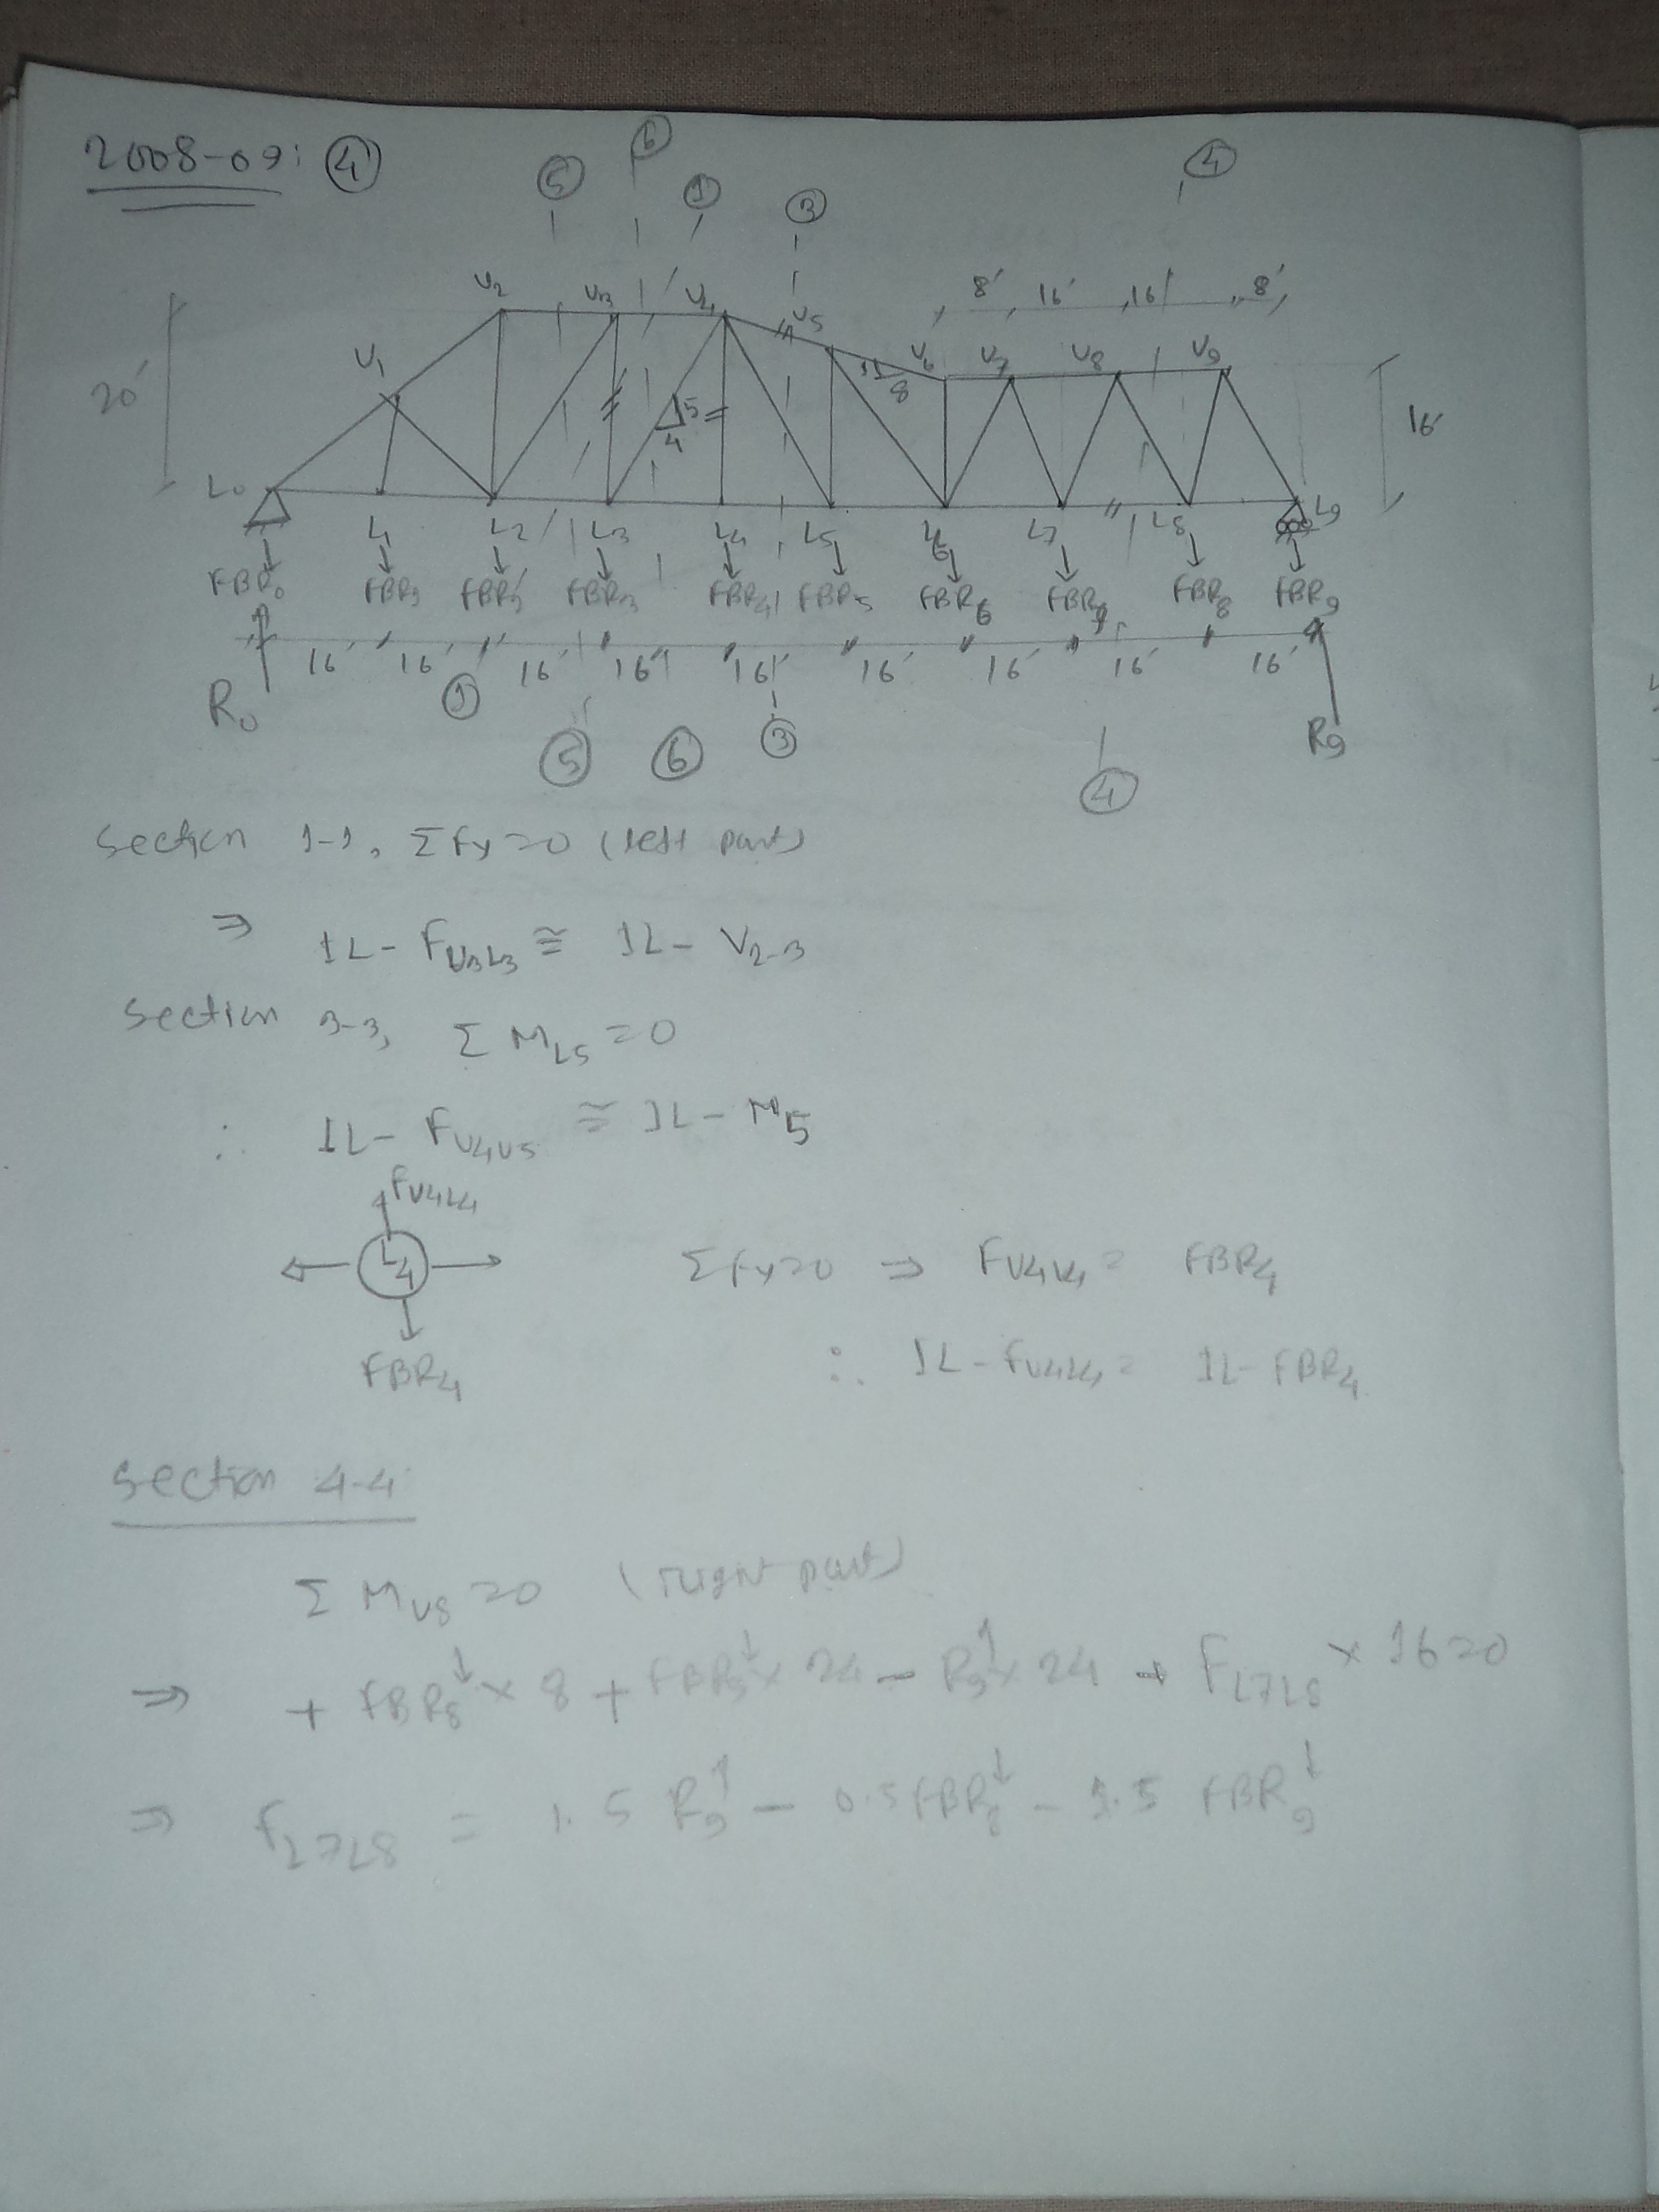 2008-09: ④
⑤ ⑥ ① ③ ④
U2 U3 U4 U5 8' 16' 16' 8'
U1 U6 U7 U8 U9
20' 5 4 1 8 16'
L0 L1 L2 L3 L4 L5 L6 L7 L8 L9
FBR0 FBR1 FBR2 FBR3 FBR4 FBR5 FBR6 FBR7 FBR8 FBR9
16' 16' 16' 16' 16' 16' 16' 16' 16'
R0 ① R9
⑤ ⑥ ③ ④
Section 1-1, ΣFy=0 (left part)
⇒ IL- FU3L3 ≅ IL- V2-3
Section 3-3, ΣML5=0
∴ IL- FU4U5 ≅ IL- M5
FU4L4
L4
ΣFy=0 ⇒ FU4L4= FBR4
FBR4
∴ IL-FU4L4= IL-FBR4
Section 4-4
ΣMU8=0 (right part)
⇒ + FBR8↓×8+FBR9↓×24-R9↑×24+FL7L8×16=0
⇒ FL7L8 = 1.5 R9↑ - 0.5FBR8↓ - 1.5 FBR9↓